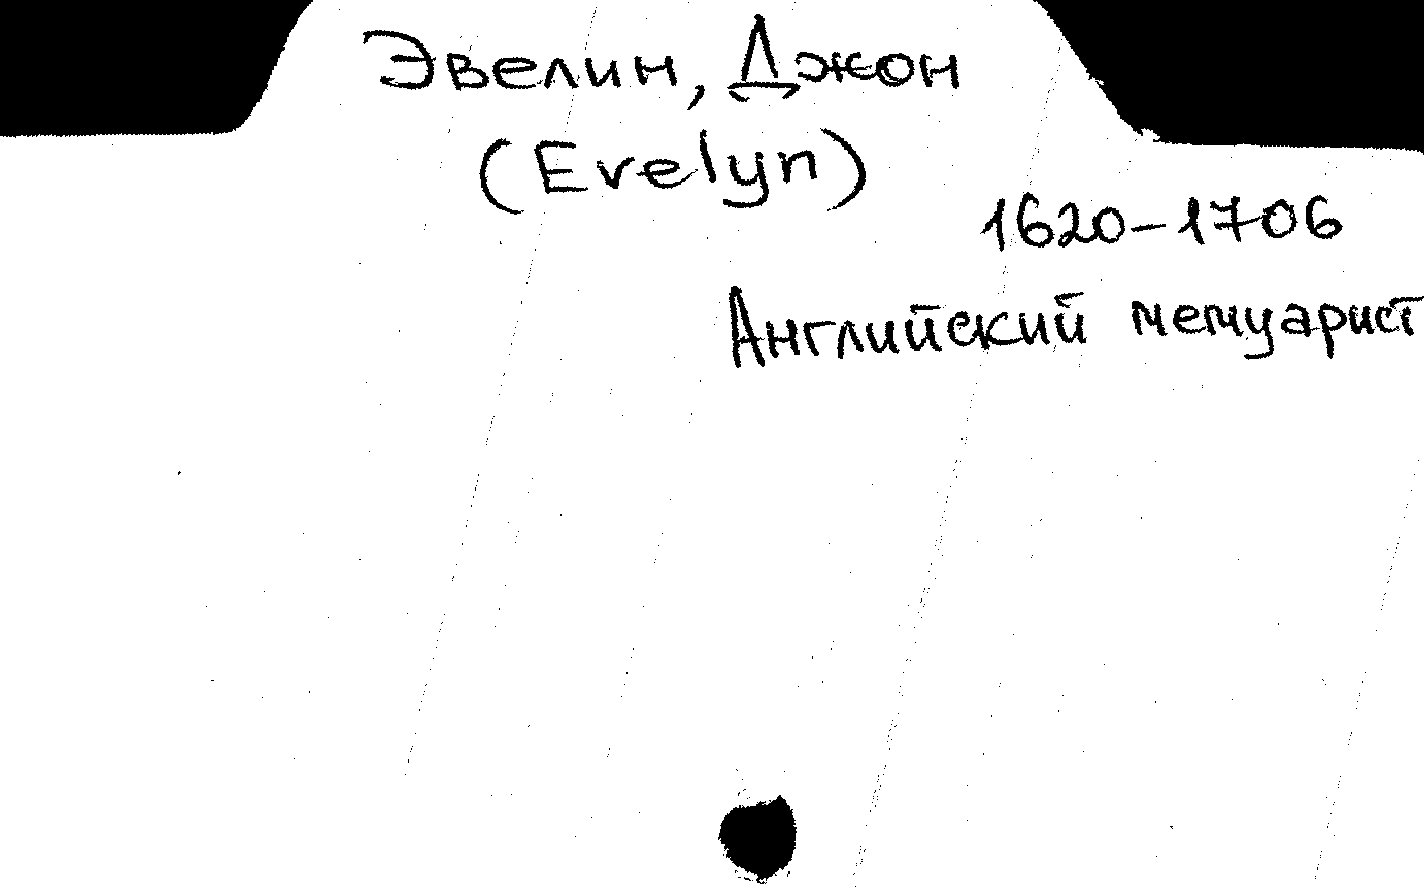 Эвелин, Джон
(Evelyn)
1620-1706
Английский мемуарист